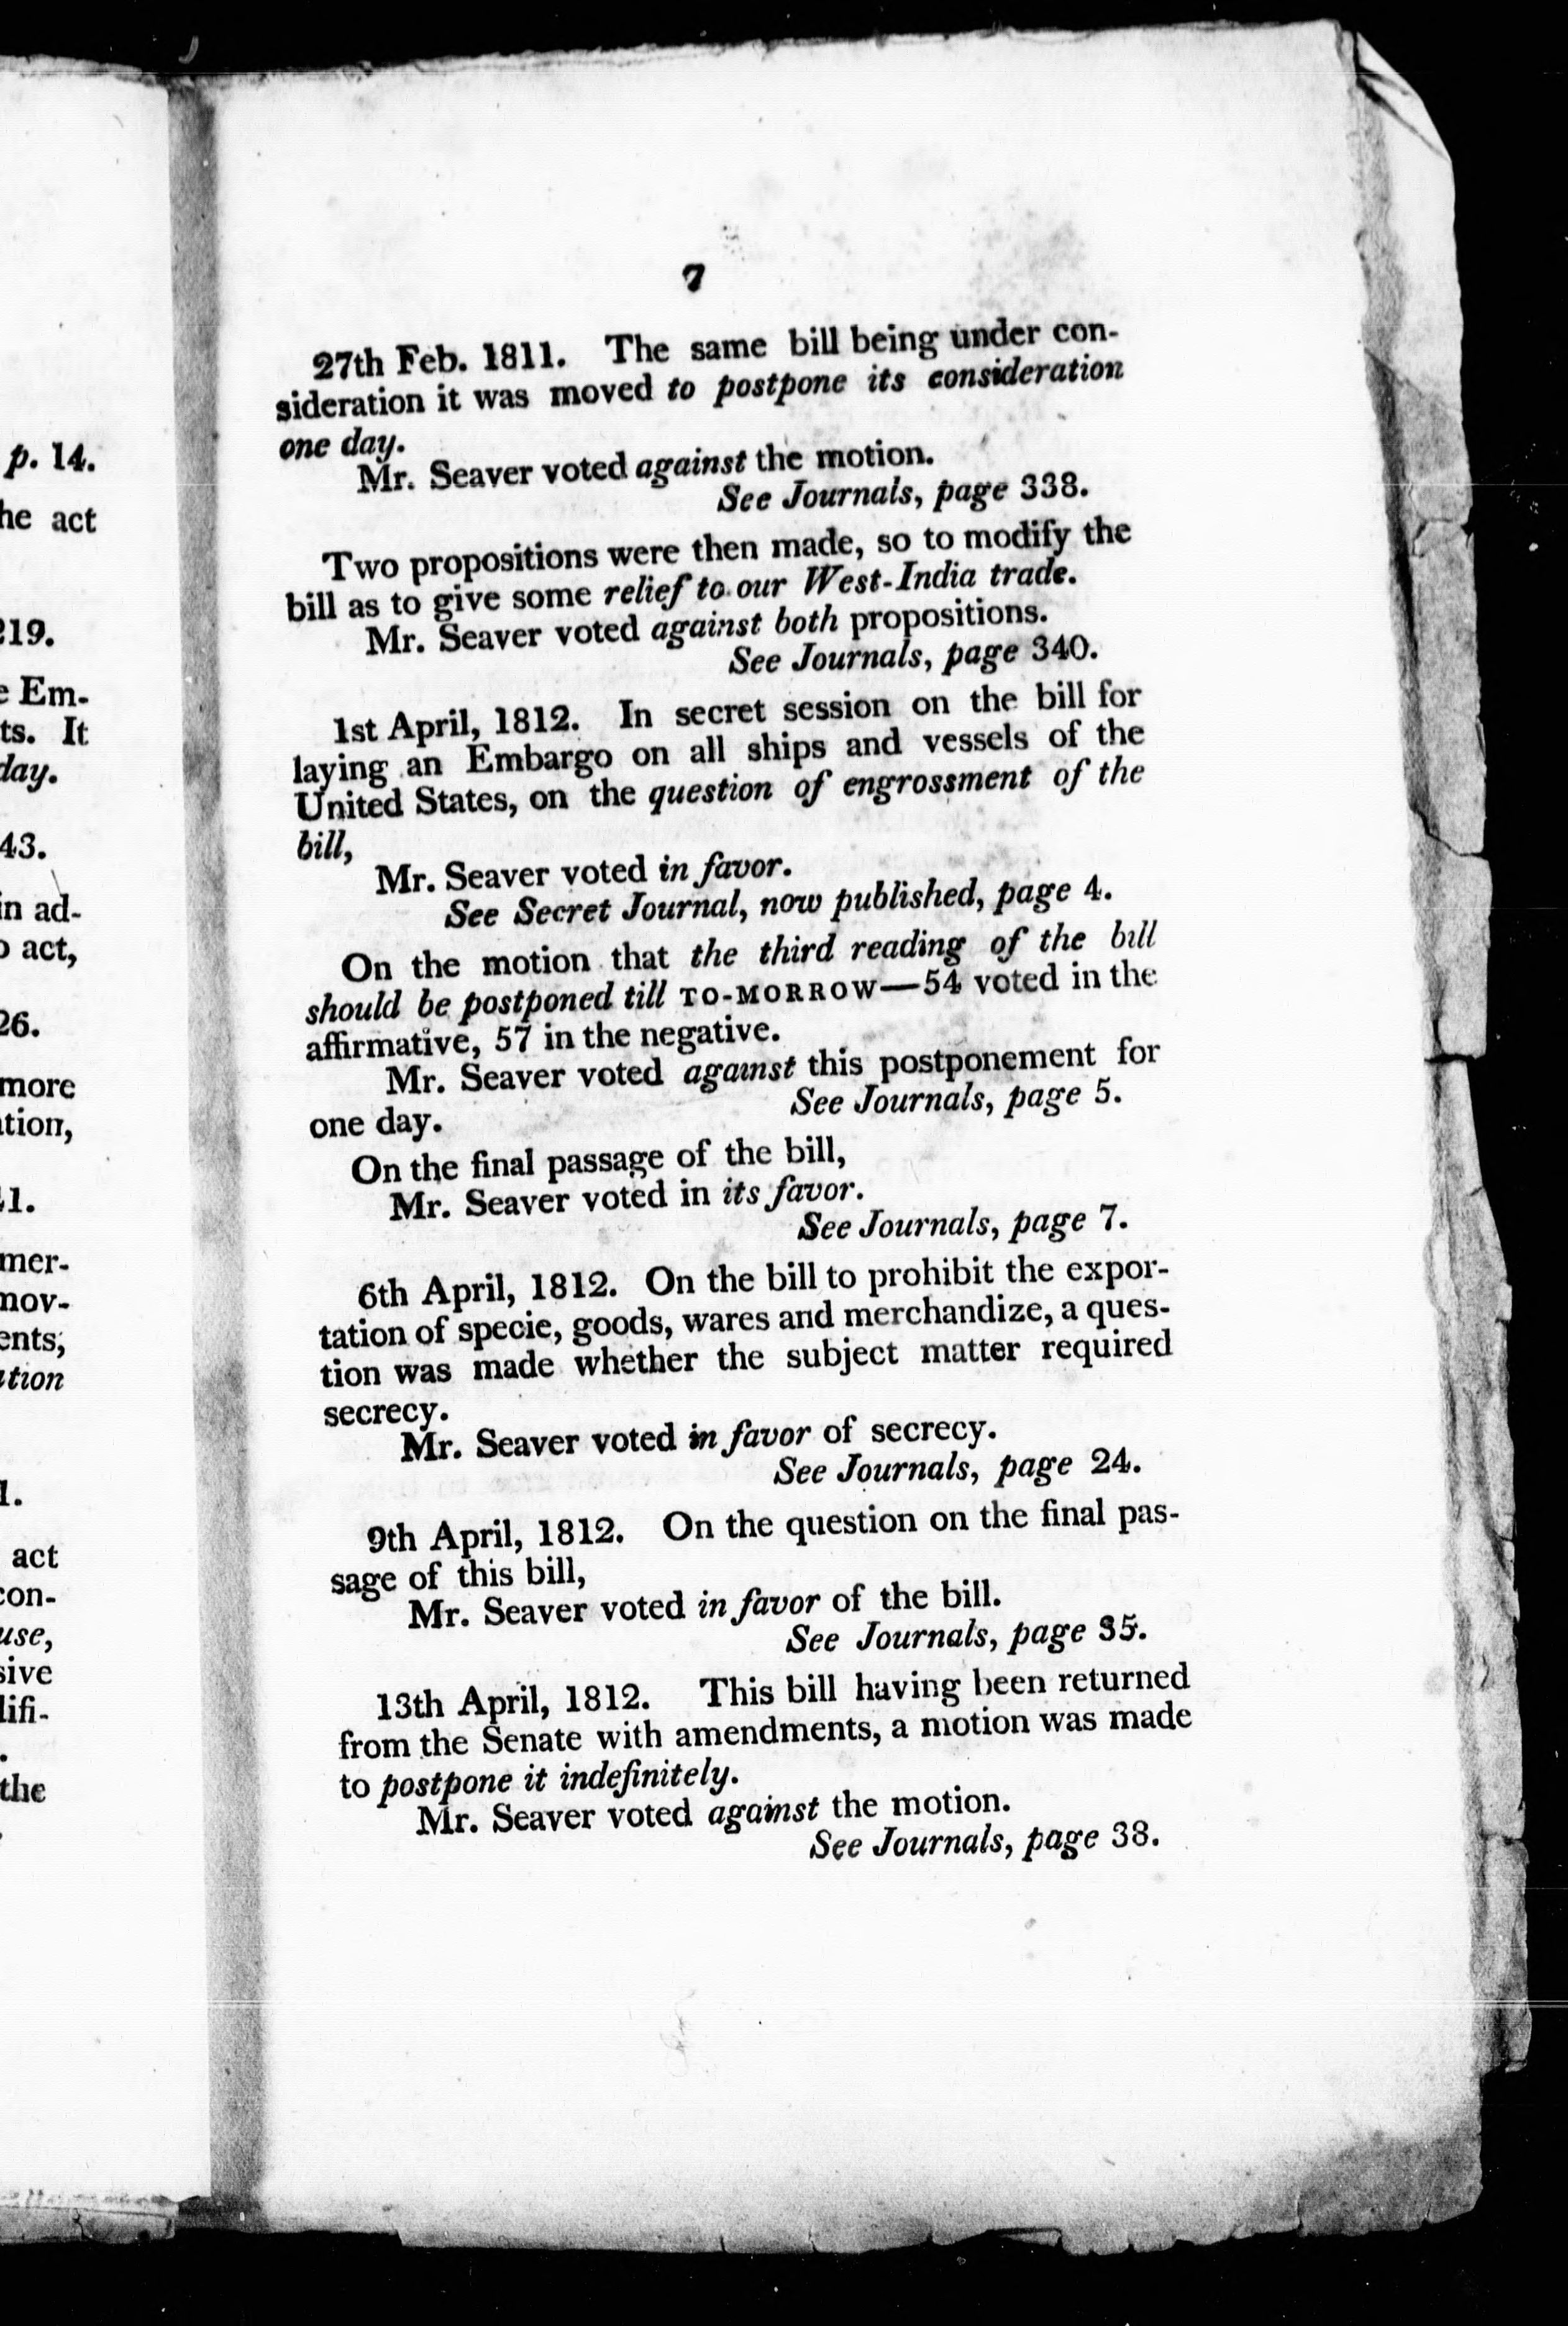 p. 14.
he act
219.
e Em-
ts. It
day.
43.
in ad-
o act,
26.
more
tion,
1.
mer-
mov-
ents,
tion
1.
act
con-
use,
sive
lifi-
the
7
27th Feb. 1811. The same bill being under con-
sideration it was moved to postpone its consideration
one day.
Mr. Seaver voted against the motion.
See Journals, page 338.
Two propositions were then made, so to modify the
bill as to give some relief to our West-India trade.
Mr. Seaver voted against both propositions.
See Journals, page 340.
1st April, 1812. In secret session on the bill for
laying an Embargo on all ships and vessels of the
United States, on the question of engrossment of the
bill,
Mr. Seaver voted in favor.
See Secret Journal, now published, page 4.
On the motion that the third reading of the bill
should be postponed till TO-MORROW—54 voted in the
affirmative, 57 in the negative.
Mr. Seaver voted against this postponement for
one day. See Journals, page 5.
On the final passage of the bill,
Mr. Seaver voted in its favor.
See Journals, page 7.
6th April, 1812. On the bill to prohibit the expor-
tation of specie, goods, wares and merchandize, a ques-
tion was made whether the subject matter required
secrecy.
Mr. Seaver voted in favor of secrecy.
See Journals, page 24.
9th April, 1812. On the question on the final pas-
sage of this bill,
Mr. Seaver voted in favor of the bill.
See Journals, page 35.
13th April, 1812. This bill having been returned
from the Senate with amendments, a motion was made
to postpone it indefinitely.
Mr. Seaver voted against the motion.
See Journals, page 38.